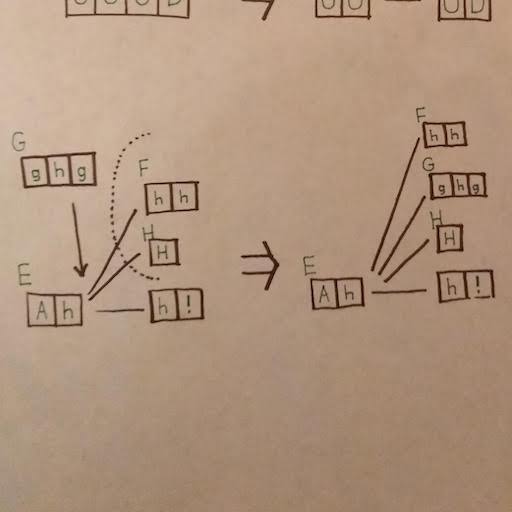 G
g h g
F
h h
H
H
E
A h
h !
F
h h
G
g h g
H
H
E
A h
h !